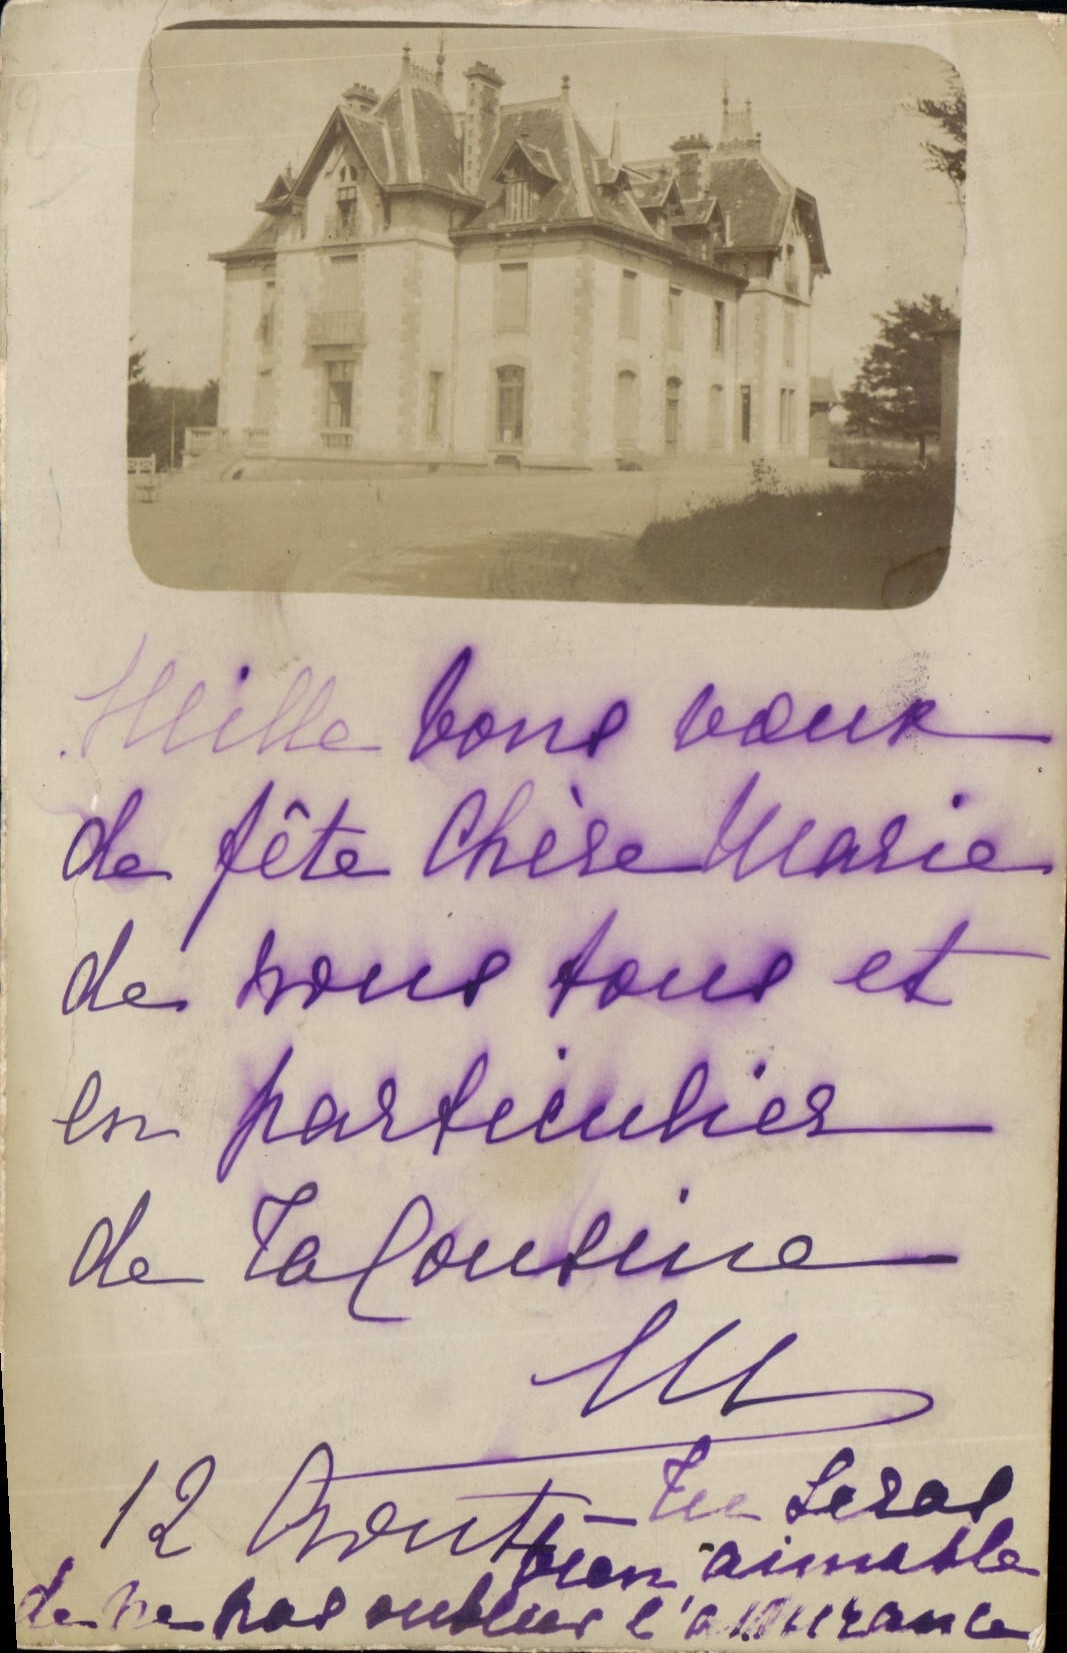 Mille bons vœux
de fête Chère Marie
de nous tous et
en particulier
de Ta Cousine
M
12 Aout – Tu seras
bien aimable
de ne pas oublier l'assurance